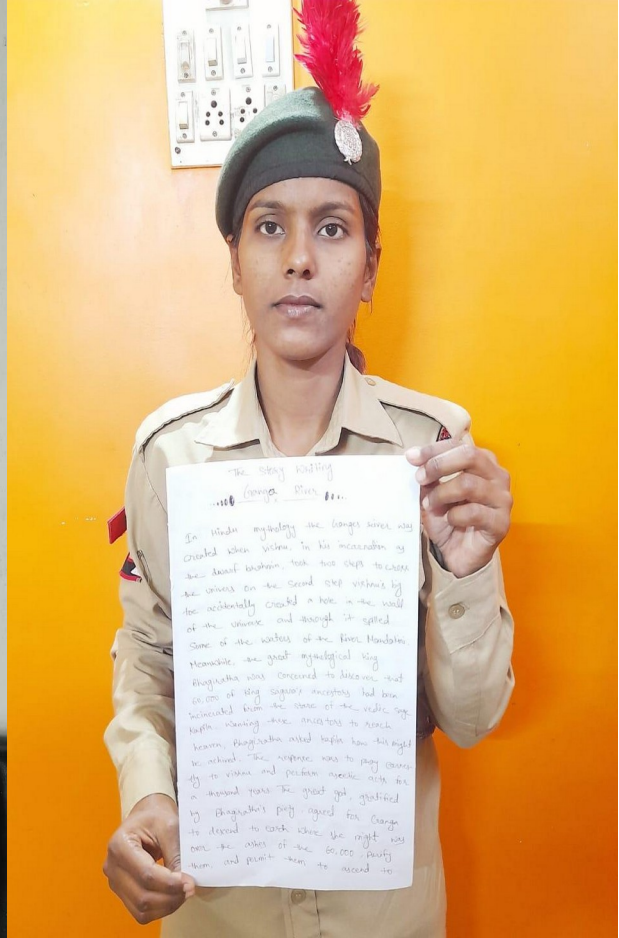 The Story Writing
Ganga River
In Hindu mythology the Ganges river was
created when vishnu, in his incarnation as
the dwarf brahmin, took two steps to cross
the univers on the Second step vishnu's big
toe accidentally created a hole in the wall
of the universe and through it spilled
Some of the waters of the River Mandakini
Meanwhile the great mythological king
Bhagiratha was concerned to discover that
60,000 of King Sagara's ancestors had been
incinerated from the stare of the vedic Sage
Kapila wanting these ancestors to reach
heaven, Bhagiratha asked kapila how this might
be achived. The response was to pray
to vishnu and perform ascetic acts for
a thousand years The great god, gratified
by Bhagiratha's piety agreed for Ganga
to descend to earth where she might
over the ashes of the 60,000 Purify
them, and permit them to ascend to